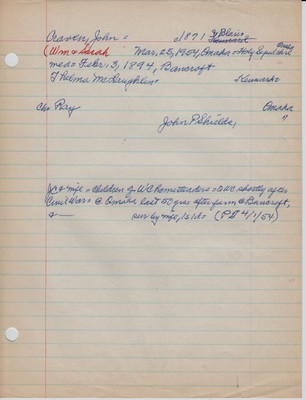 Craven, John = c1871 Ft Blair,
(Wm & Sarah Mar. 25, 1954, Omaha = Holy Sepulchre
med = Febr. 3, 1894, Bancroft
Thelma McLaughlin = Kennard =
Chas Ray Omaha
John P Shields, "
Jo & wife = children of WC homesteaders = a WC shortly after
Civil War = @ Omaha last 50 yrs after farm @ Bancroft,
sur by wife, 1s 1d = (PD 4/1/54)